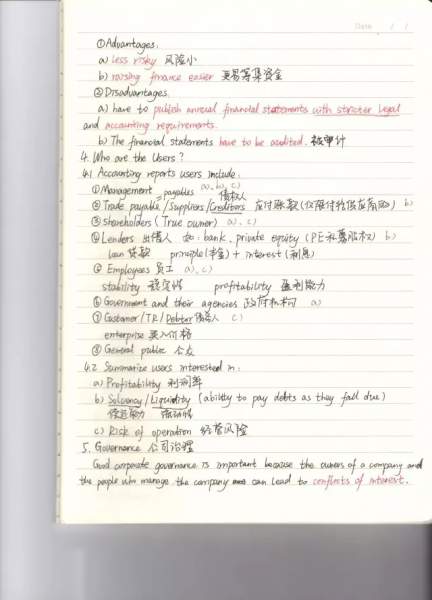 Date / /
①Advantages.
a) less risky 风险小
b) raising finance easier 更易筹集资金
②Disadvantages.
a) have to publish annual financial statements with stricter legal
and accounting requirements.
b) The financial statements have to be audited. 被审计
4. Who are the Users?
4.1 Accounting reports users include:
①Management a、b、c)
payables 债权人
②Trade payable/Suppliers/Creditors 应付账款 b)
③Shareholders (True owner) a)、c)
④Lenders 出借人 如: bank, private equity (PE私募股权) b)
loan 贷款 principle(本金) + interest(利息)
⑤ Employees 员工 a)、c)
stability 稳定性 profitability 盈利能力
⑥Government and their agencies 政府和机构 a)
⑦Customer/TR/Debtor 债务人 c)
enterprise
⑧General public 公众
4.2 Summarize users interested in:
a) Profitability 利润率
b) Solvency/Liquidity (ability to pay debts as they fall due)
偿还能力 流动性
c) Risk of operation 经营风险
5. Governance 公司治理
Good corporate governance is important because the owners of a company and
the people who manage the company can lead to conflicts of interest.